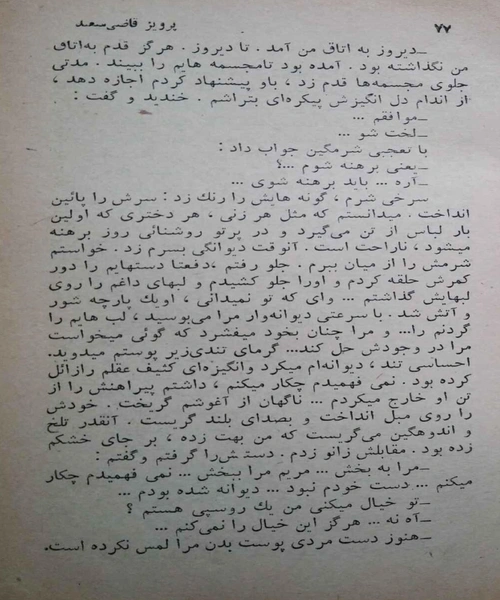 ۷۷
پرویز قاضی‌سعید
_دیروز به اتاق من آمد . تا دیروز . هرگز قدم به‌اتاق
من نگذاشته بود . آمده بود تامجسمه هایم را ببیند . مدتی
جلوی مجسمه‌ها قدم زد ، باو پیشنهاد کردم اجازه دهد ،
از اندام دل انگیزش پیکره‌ای بتراشم . خندید و گفت :
_موافقم ...
_لخت شو ...
با تعجبی شرمگین جواب داد :
_یعنی برهنه شوم ...؟
_آره ... باید برهنه شوی ...
سرخی شرم ، گونه هایش را رنك زد : سرش را پائین
انداخت . میدانستم که مثل هر زنی ، هر دختری که اولین
بار لباس از تن می‌گیرد و در پرتو روشنائی روز برهنه
میشود ، ناراحت است . آنوقت دیوانگی بسرم زد . خواستم
شرمش را از میان ببرم . جلو رفتم ،دفعتا دستهایم را دور
کمرش حلقه کردم و اورا جلو کشیدم و لبهای داغم را روی
لبهایش گذاشتم ... وای که تو نمیدانی ، اویك پارچه شور
و آتش شد . با سرعتی دیوانه‌وار مرا می‌بوسید ، لب هایم را
گردنم را... و مرا چنان بخود میفشرد که گوئی میخواست
مرا در وجودش حل کند... گرمای تندی‌زیر پوستم میدوید.
احساسی تند ، دیوانه‌ام میکرد وانگیزه‌ای کثیف عقلم رازائل
کرده بود . نمی فهمیدم چکار میکنم ، داشتم پیراهنش را از
تن او خارج میکردم ... ناگهان از آغوشم گریخت . خودش
را روی مبل انداخت و بصدای بلند گریست . آنقدر تلخ
و اندوهگین می‌گریست که من بهت زده ، بر جای خشکم
زده بود . مقابلش زانو زدم . دستش‌را گرفتم وگفتم :
_مرا به بخش ... مریم مرا ببخش ... نمی فهمیدم چکار
میکنم ... دست خودم نبود ... دیوانه شده بودم ...
_تو خیال میکنی من یك روسپی هستم ؟
_آه نه ... هرگز این خیال را نمی‌کنم ...
_هنوز دست مردی پوست بدن مرا لمس نکرده است.